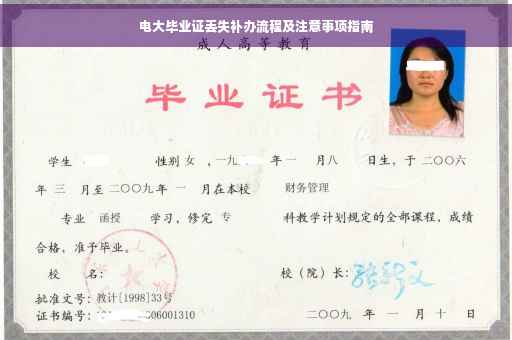 电大毕业证丢失补办流程及注意事项指南
成人高等教育
毕业证书
学生 性别 女 ，一九 年 一 月 八 日生，于 二〇〇六
年 三 月至 二〇〇九 年 一 月在本校 财务管理
专业 函授 学习，修完 专 科教学计划规定的全部课程，成绩
合格，准予毕业。
校 名： 校（院）长：
批准文号：教计[1998]33号
证书编号： 06001310 二〇〇九 年 一 月 十 日